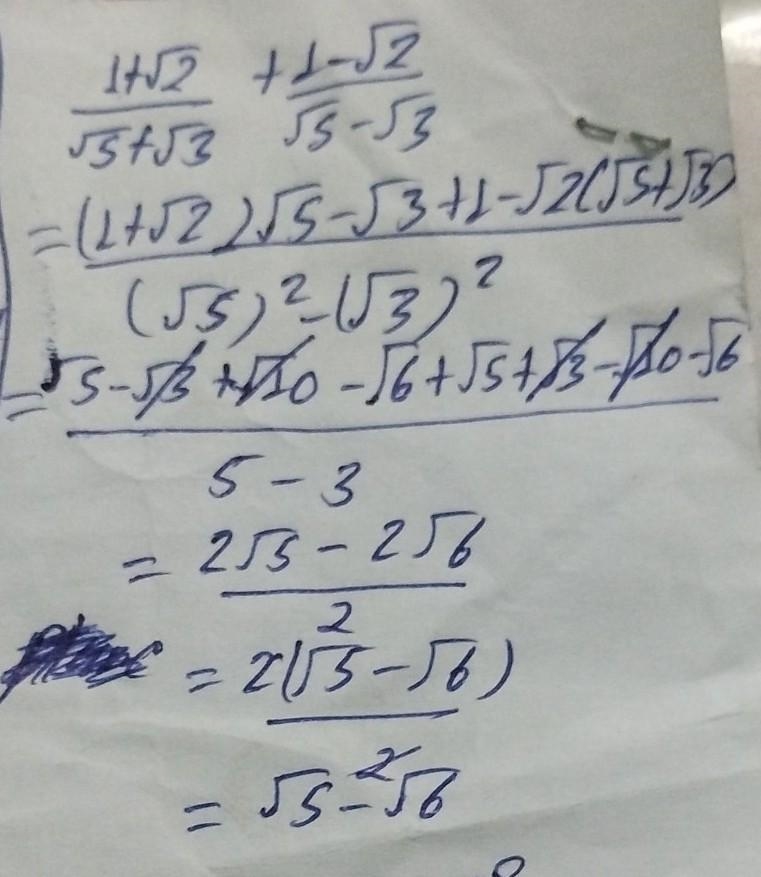 1+√2 + 1-√2
√5+√3 √5-√3
=(1+√2)√5-√3+1-√2(√5+√3)
(√5)²-(√3)²
=√5-√3+√10-√6+√5+√3-√10-√6
5-3
=2√5-2√6
2
=2(√5-√6)
2
=√5-√6